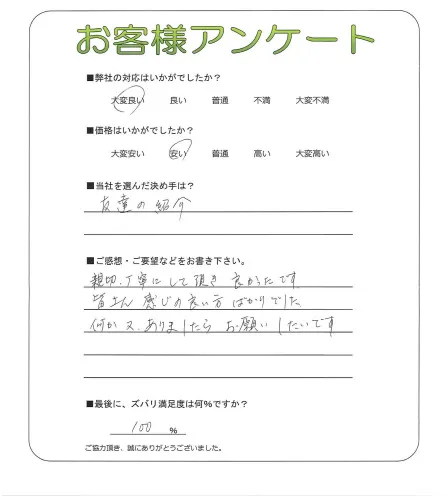 お客様アンケート
■弊社の対応はいかがでしたか？
大変良い 良い 普通 不満 大変不満
■価格はいかがでしたか？
大変安い 安い 普通 高い 大変高い
■当社を選んだ決め手は？
友達の紹介
■ご感想・ご要望などをお書き下さい。
親切、丁寧にして頂き 良かったです
皆さん 感じの良い方 ばかりでした
何か又、ありましたら お願いしたいです
■最後に、ズバリ満足度は何％ですか？
100 ％
ご協力頂き、誠にありがとうございました。